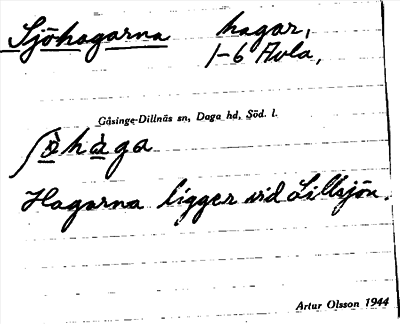 Sjöhagarna hagar,
1-6 Avla,
Gåsinge-Dillnäs sn, Daga hd, Söd. l.
ʃö̀hàga
Hagarna ligger vid Lillsjön.
Artur Olsson 1944